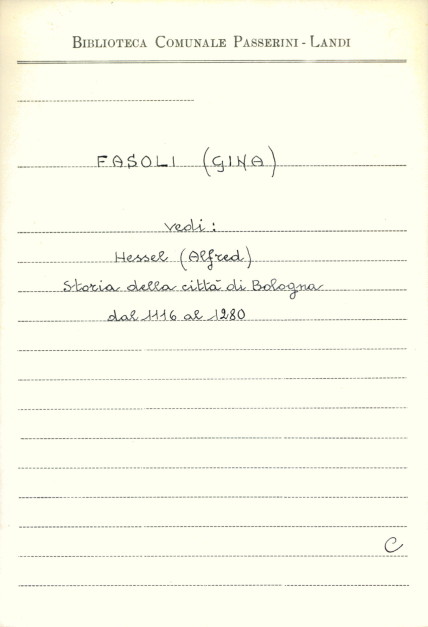 BIBLIOTECA COMUNALE PASSERINI - LANDI
FASOLI (GINA)
vedi:
Hessel (Alfred)
Storia della città di Bologna
dal 1116 al 1280
C